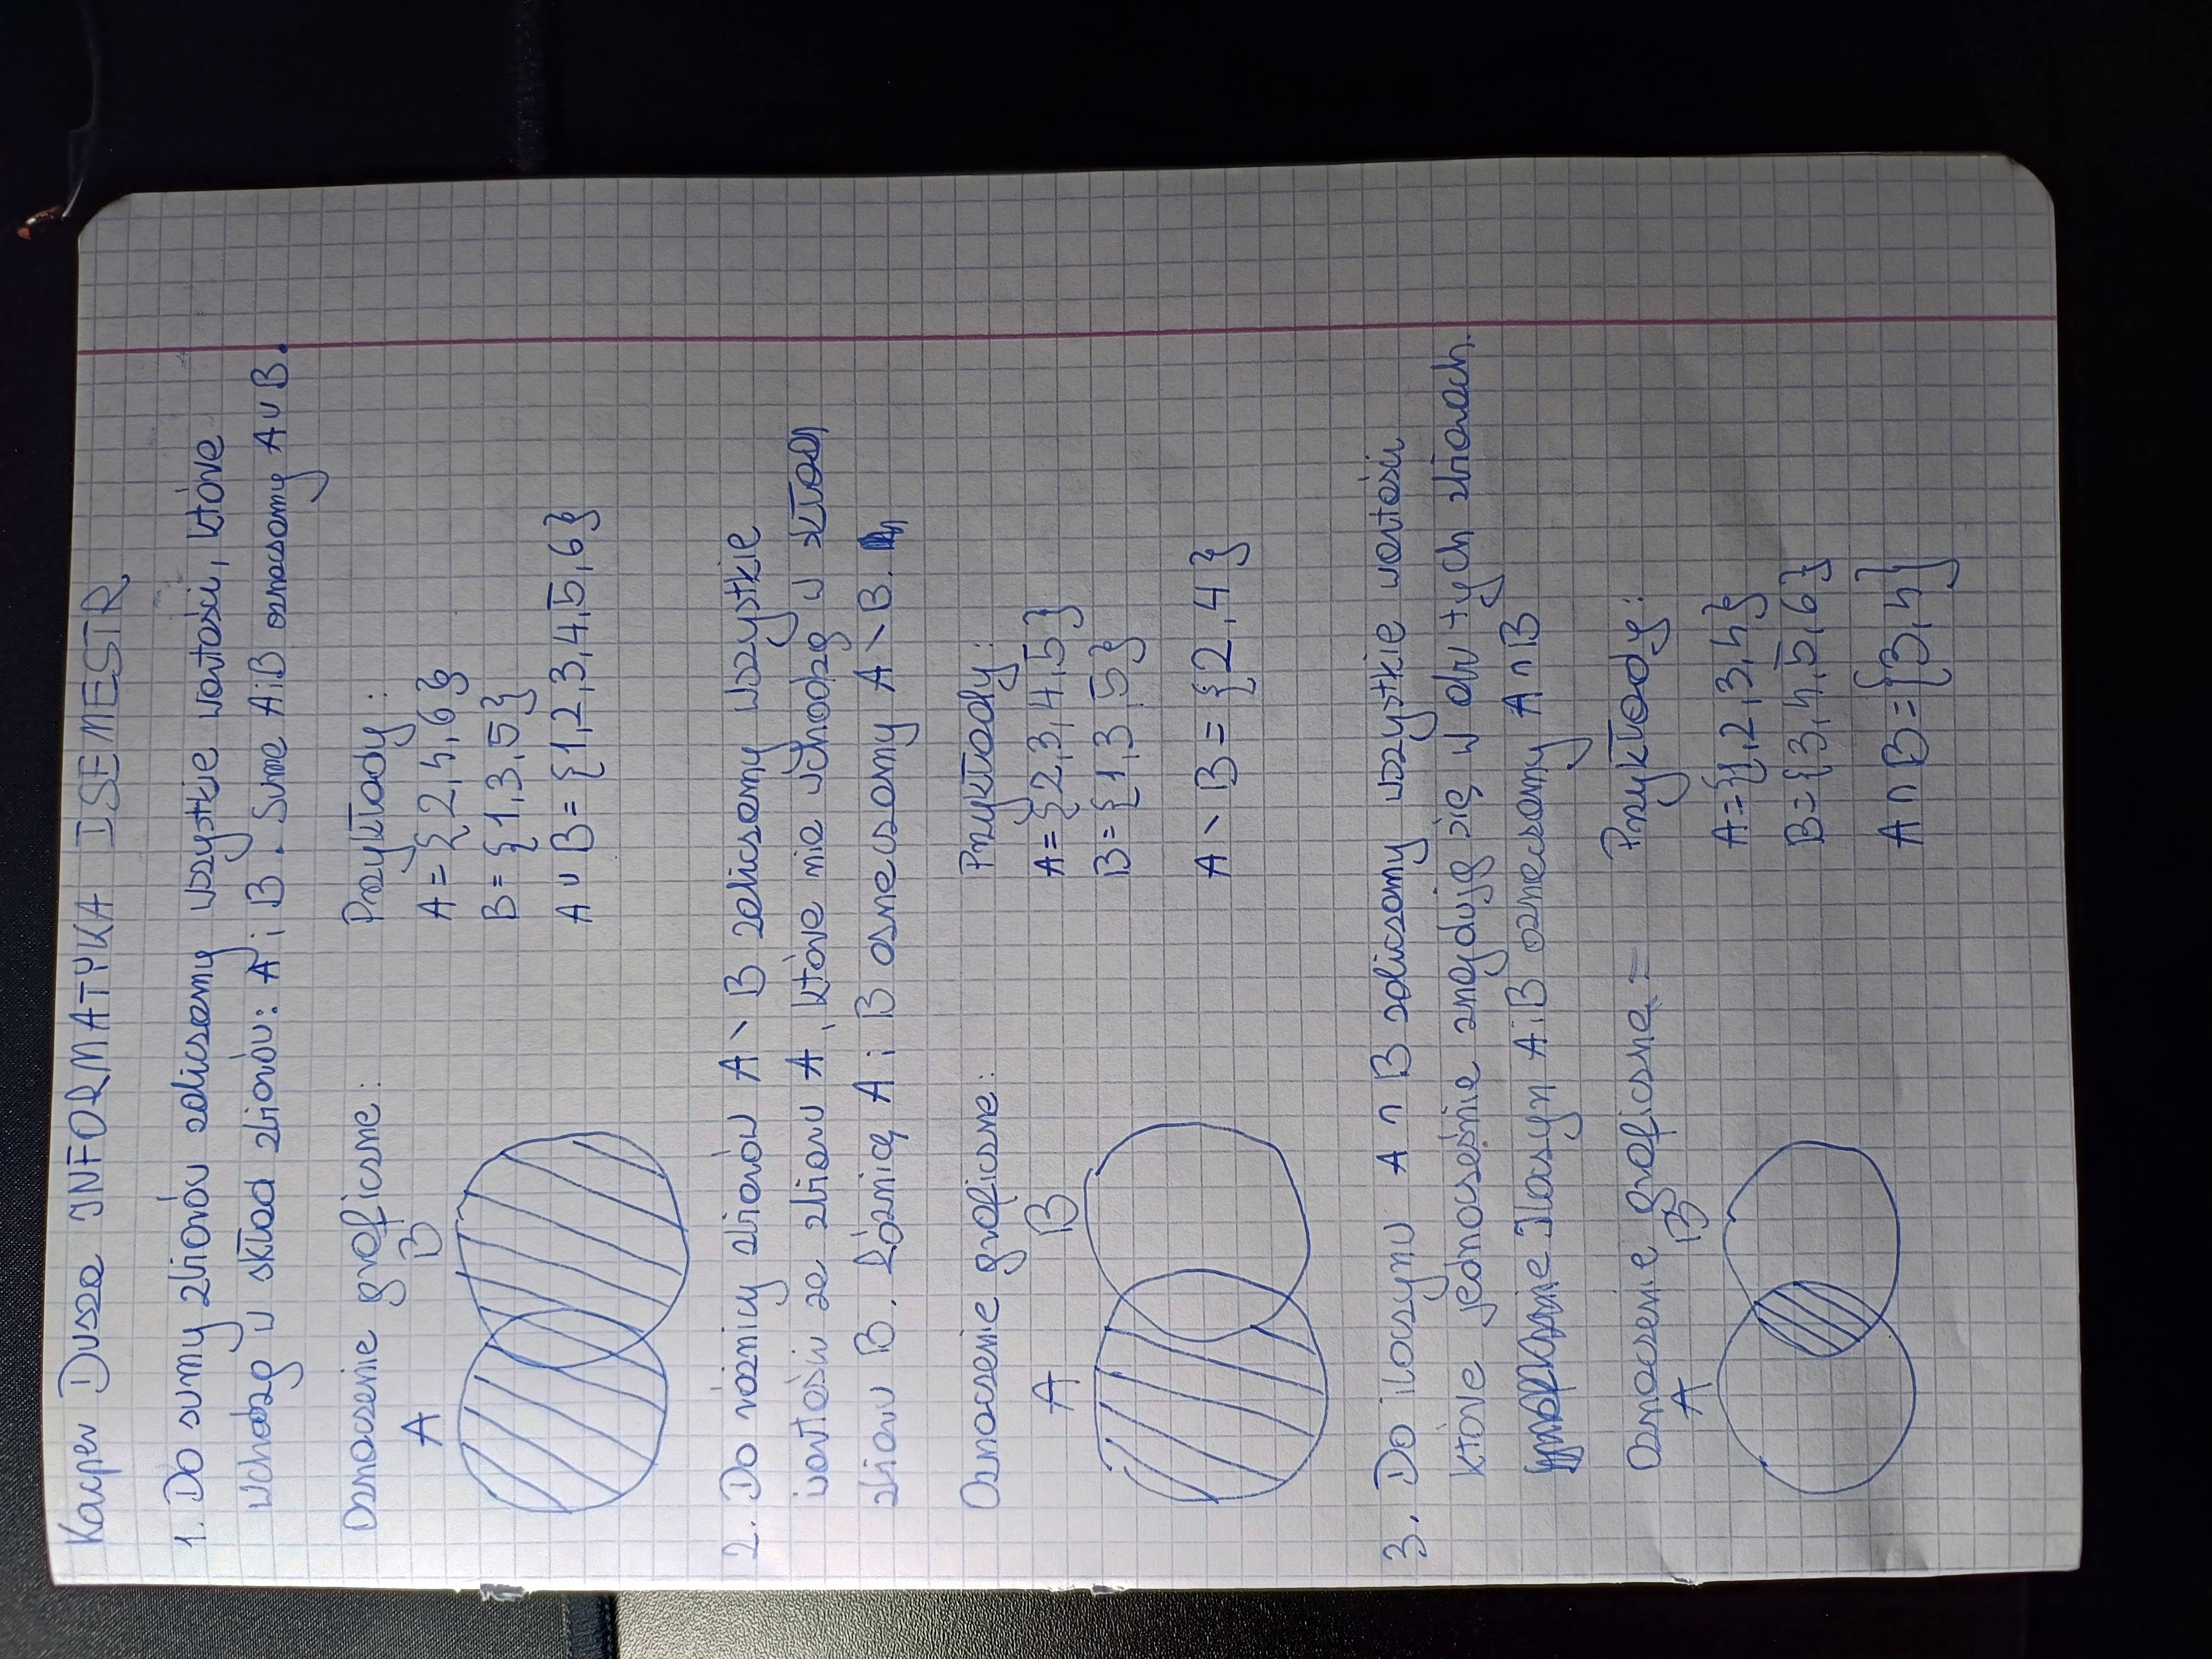 Kacper Dusza INFORMATYKA I SEMESTR
1. Do sumy zbiorów zaliczamy wszystkie wartości, które
wchodzą w skład zbiorów: A i B. Sume A i B oznaczamy A ∪ B.
Oznaczenie graficzne:
A B
Przykłady:
A = {2,4,6}
B = {1,3,5}
A ∪ B = {1,2,3,4,5,6}
2. Do różnicy zbiorów A \ B zaliczamy wszystkie
wartości ze zbioru A, które nie wchodzą w skład
zbioru B. Różnicę A i B oznaczamy A \ B.
Oznaczenie graficzne:
A B
Przykłady:
A = {2,3,4,5}
B = {1,3,5}
A \ B = {2,4}
3. Do iloczynu A ∩ B zaliczamy wszystkie wartości
które jednocześnie znajdują się w obu tych zbiorach.
Iloczyn A i B oznaczamy A ∩ B
Oznaczenie graficzne =
A B
Przykłady:
A = {1,2,3,4}
B = {3,4,5,6}
A ∩ B = {3,4}